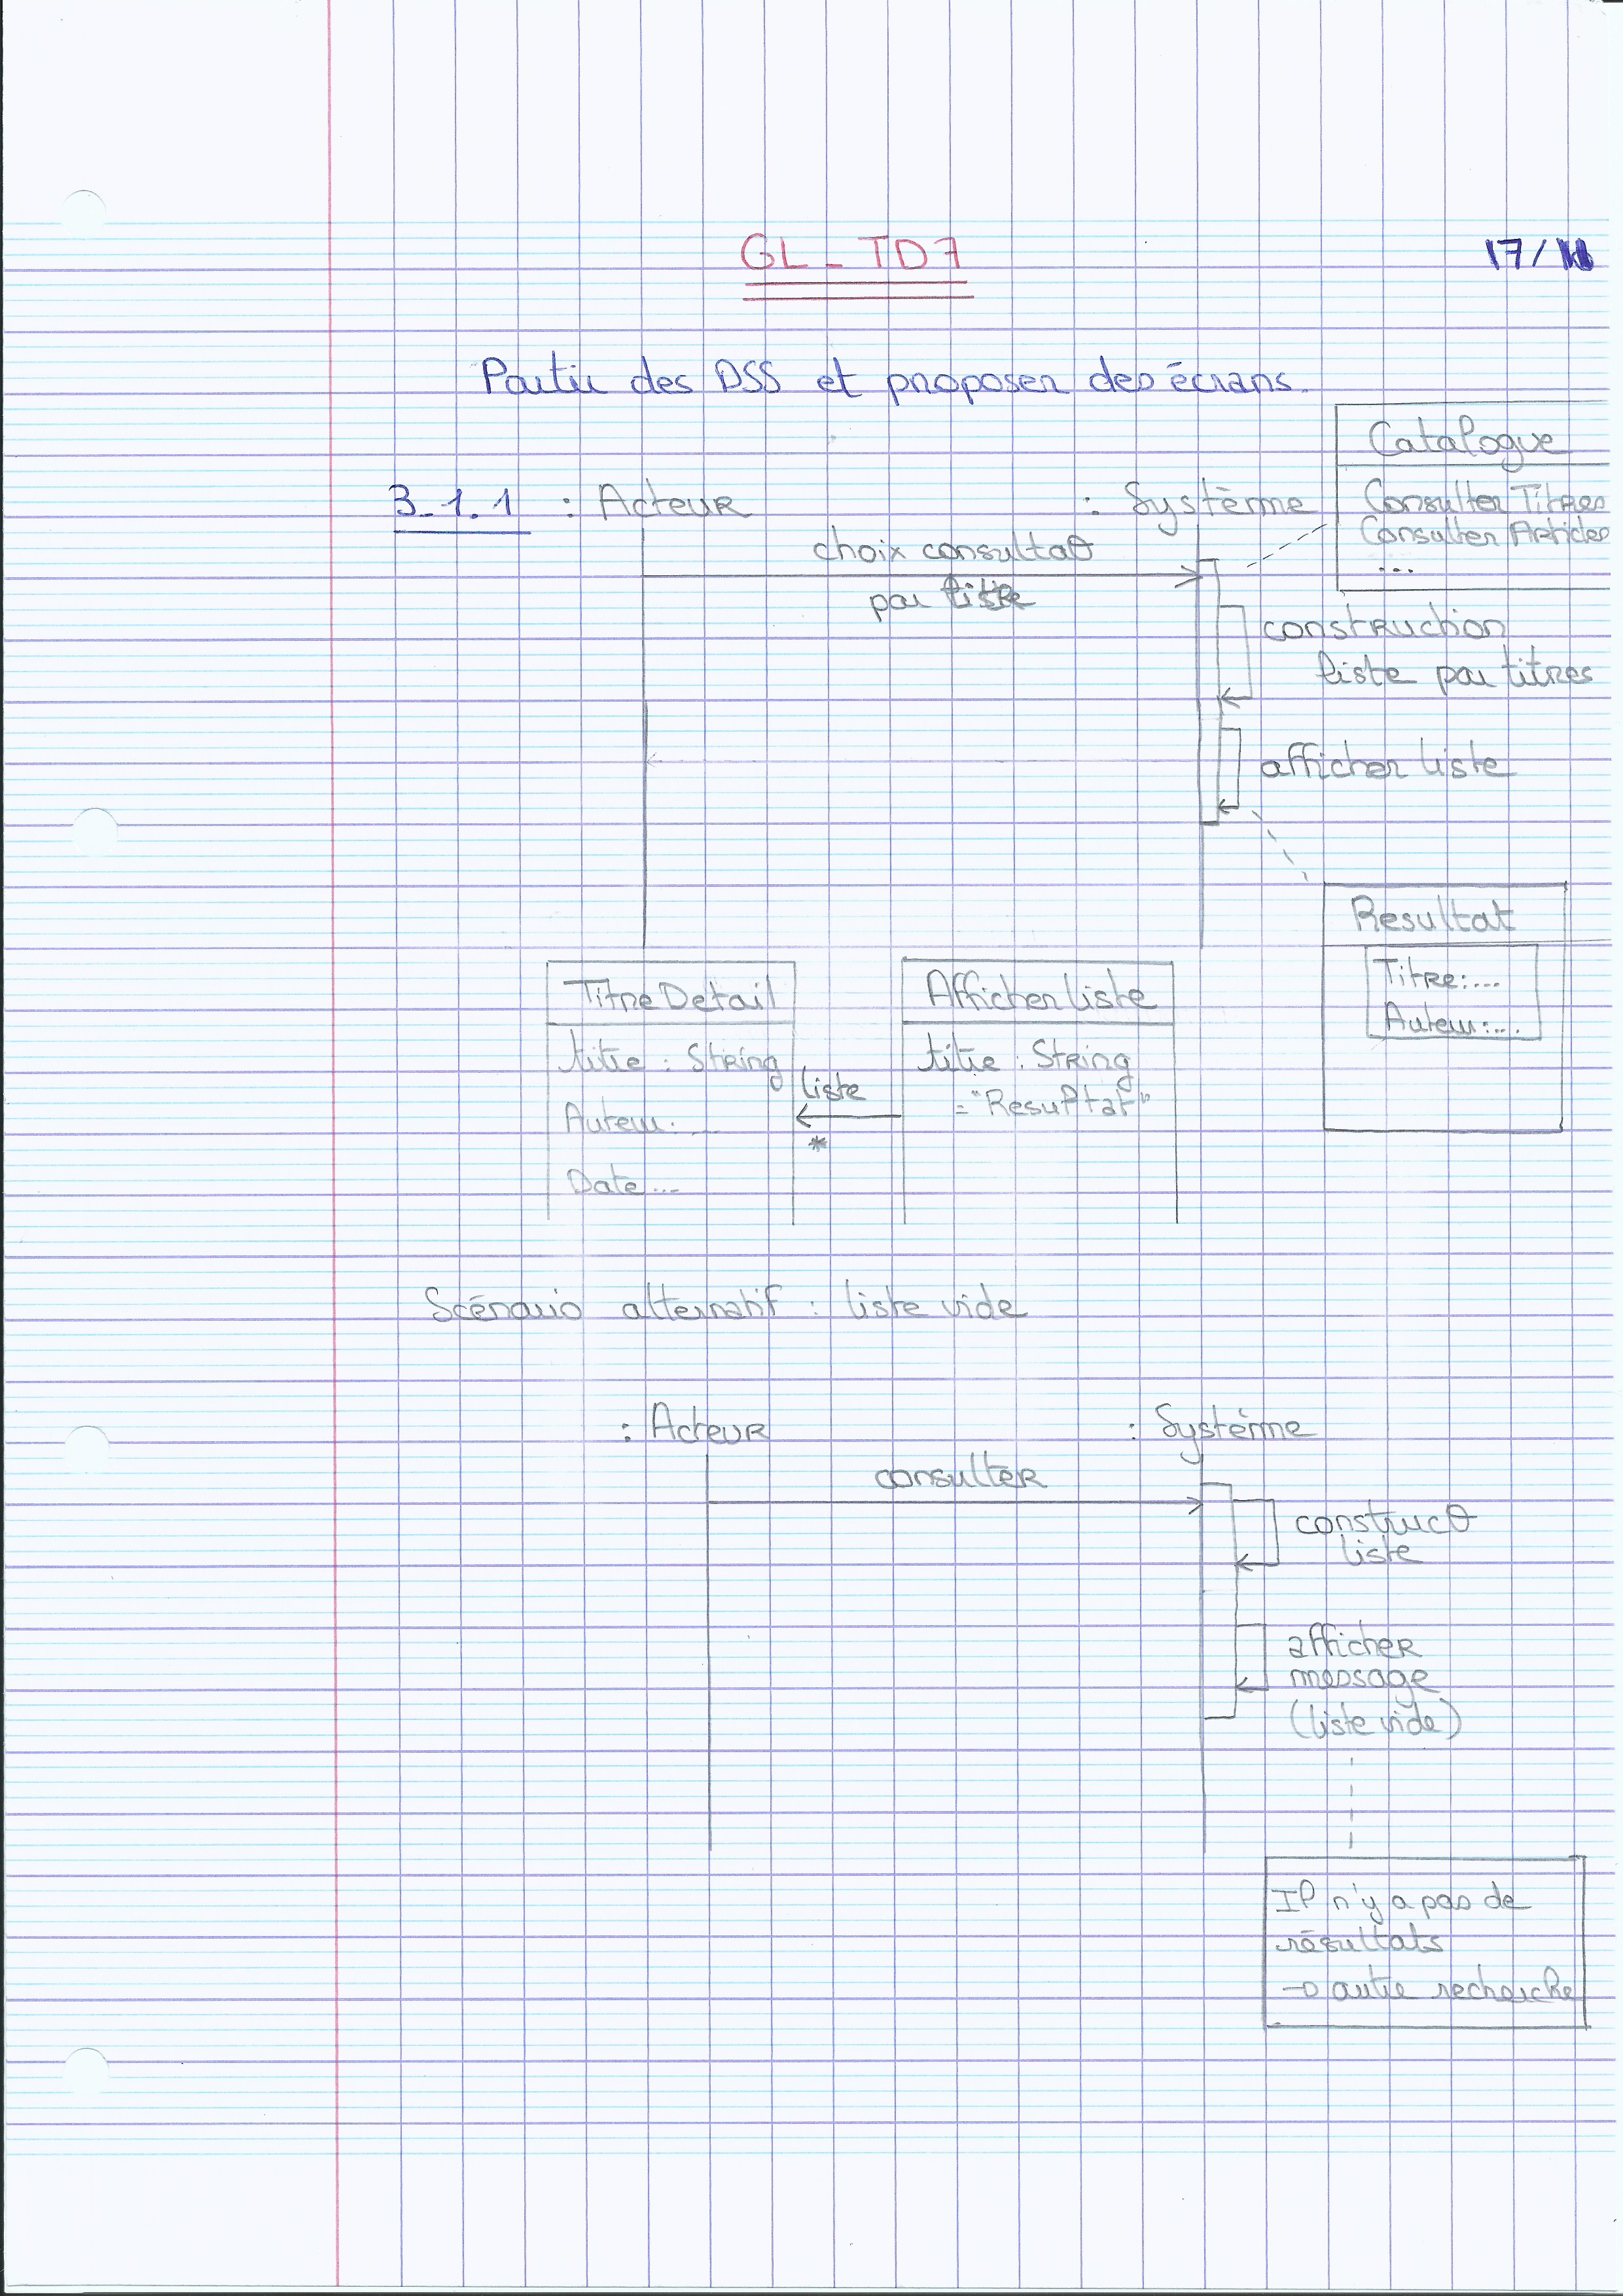 GL_TD7
17/11
Partir des DSS et proposer des écrans.
Catalogue
Consulter Titres
Consulter Articles
...
3_1.1 : Acteur : Système
choix consultaθ
par
construction
liste par titres
afficher liste
Resultat
Titre:...
Auteur:...
TitreDetail
titre : String
Auteur: ...
Date...
liste
*
Afficher liste
titre : String
= "Resultat"
Scénario alternatif : liste vide
: Acteur : Système
consulter
construcθ
liste
afficher
message
(liste vide)
Il n'y a pas de
résultats
→ autre recherche